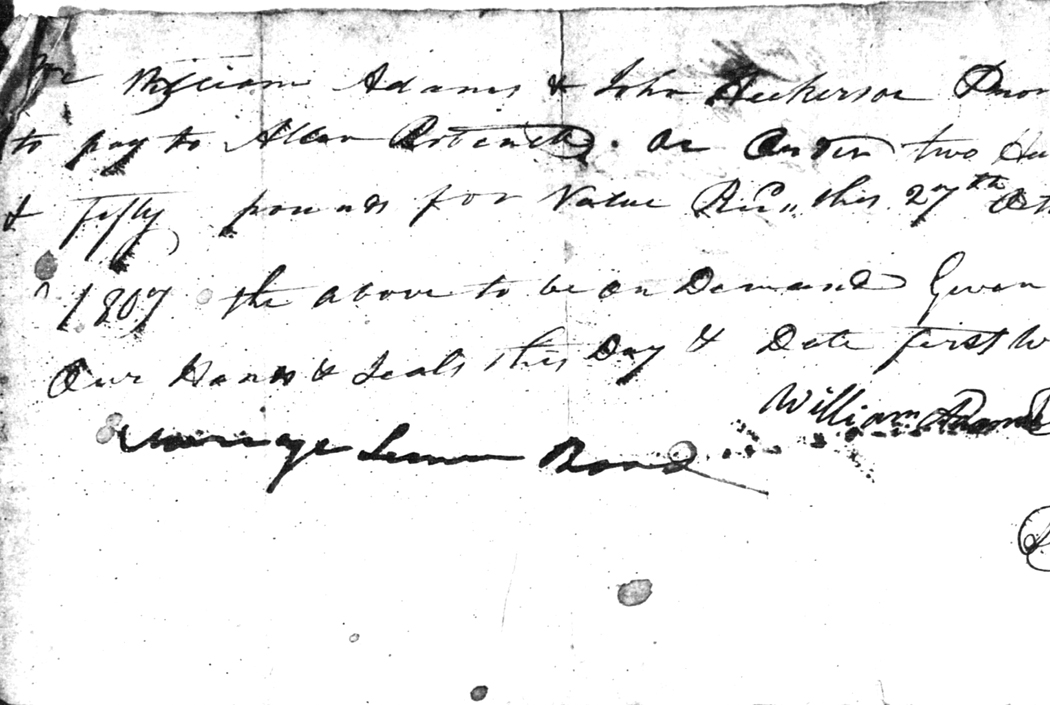 We William Adams & John Hickerson Prom
to pay to Allen Robinett or Order two Hu
& fifty pounds for Value Rec,, this 27th Oct
1807 the above to be on Demand Given
Our Hands & Seals this Day & Date first W
William Adams
Bond